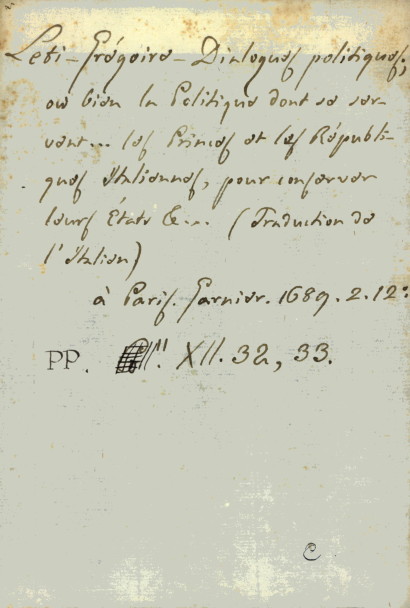 Leti-Grégoire-Dialogues politiques,
où bien la Politique dont se ser-
vent... les Princes et les Républi-
ques Italiennes, pour conserver
leurs États &... (Traduction de
l'Italien)
à Paris. Garnier. 1689. 2. 12:
PP. XII. 32, 33.
C